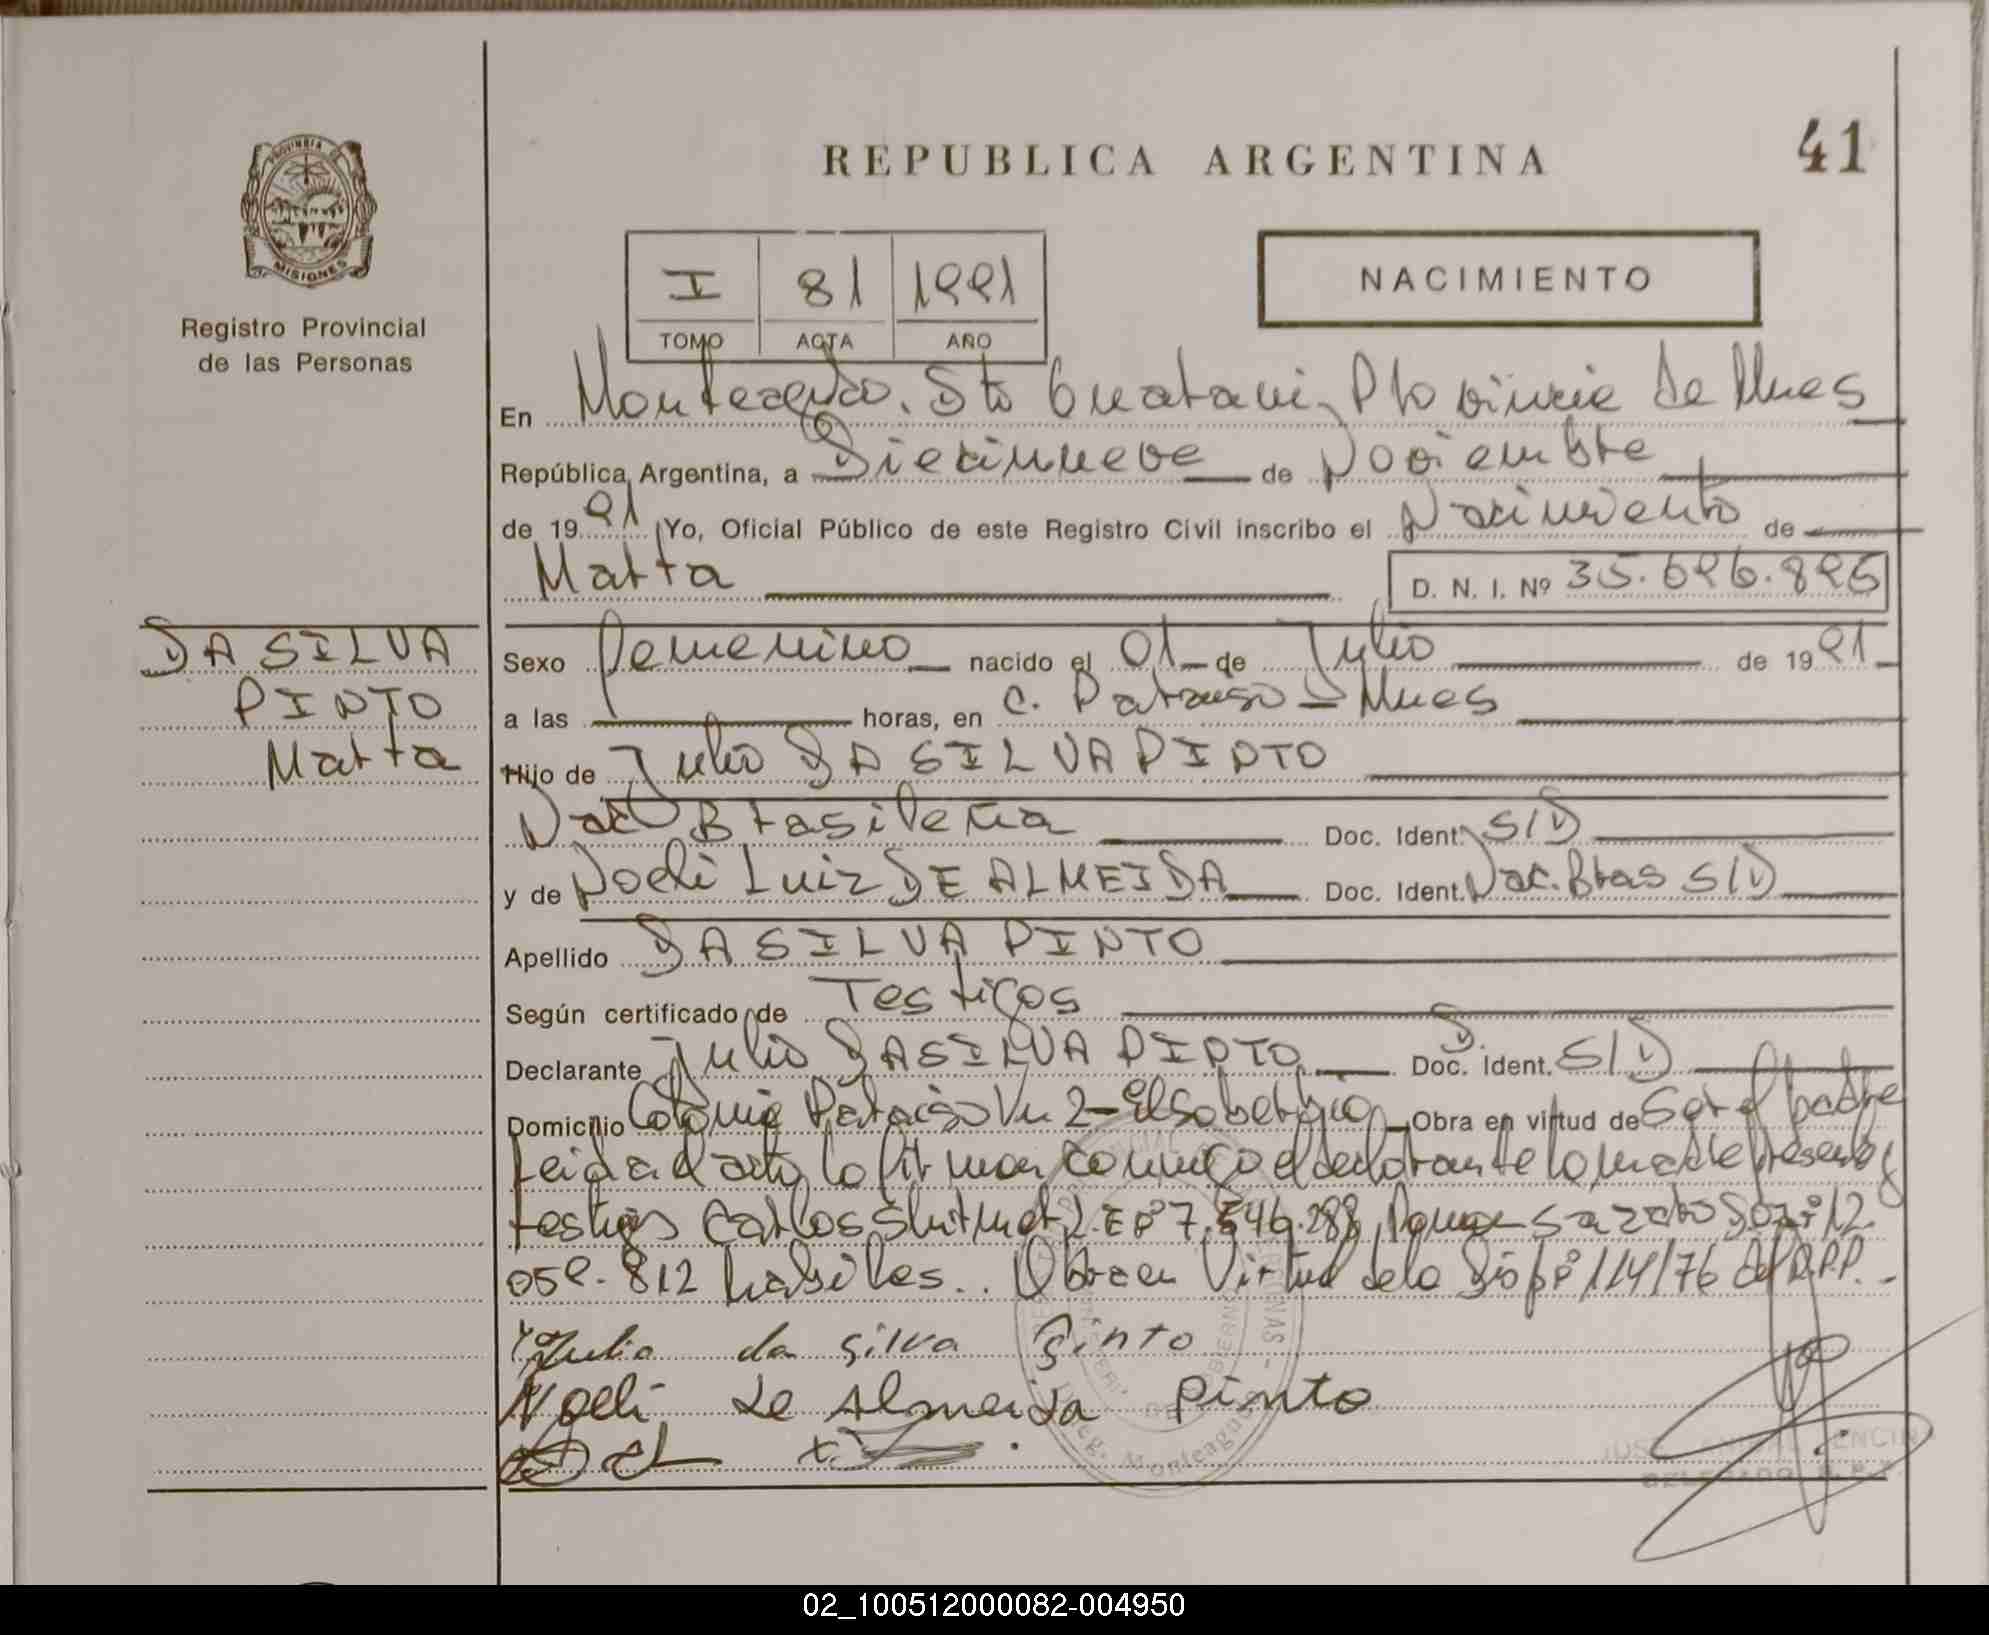 REPUBLICA ARGENTINA
41
PROVINCIA DE
MISIONES
Registro Provincial
de las Personas
I 81 1991
TOMO ACTA AÑO
NACIMIENTO
En Monteagudo. Dto Guarani, Provincia de Mnes
República Argentina, a Diecinueve de Noviembre
de 1991 Yo, Oficial Público de este Registro Civil inscribo el Nacimiento de
Marta D. N. I. Nº 35.696.895
DA SILVA
PINTO
Marta
Sexo Femenino nacido el 01 de Julio de 1991
a las horas, en C. Paraiso - Mnes
Hijo de Julio DA SILVA PINTO
Nac Brasileña Doc. Ident. S/D
y de Noeli Luiz DE ALMEIDA Doc. Ident. Nac. Bras S/D
Apellido DA SILVA PINTO
Según certificado de Testigos
Declarante Julio DA SILVA PINTO Doc. Ident. S/D
Domicilio Colonia Paraiso Km 2 - El Soberbio Obra en virtud de Ser el padre
Leida el acta, la firman conmigo el declarante la madre presente y
testigos Carlos L.E Nº 7.546.288, D.N.I. Nº 12.
059.812 habiles.. Obra en Virtud de la Nº 114/76 del R.P.P.
Julio da Silva Pinto
Noeli de Almeida Pinto
Monteagudo
DELEGADO R.P.P.
02_100512000082-004950